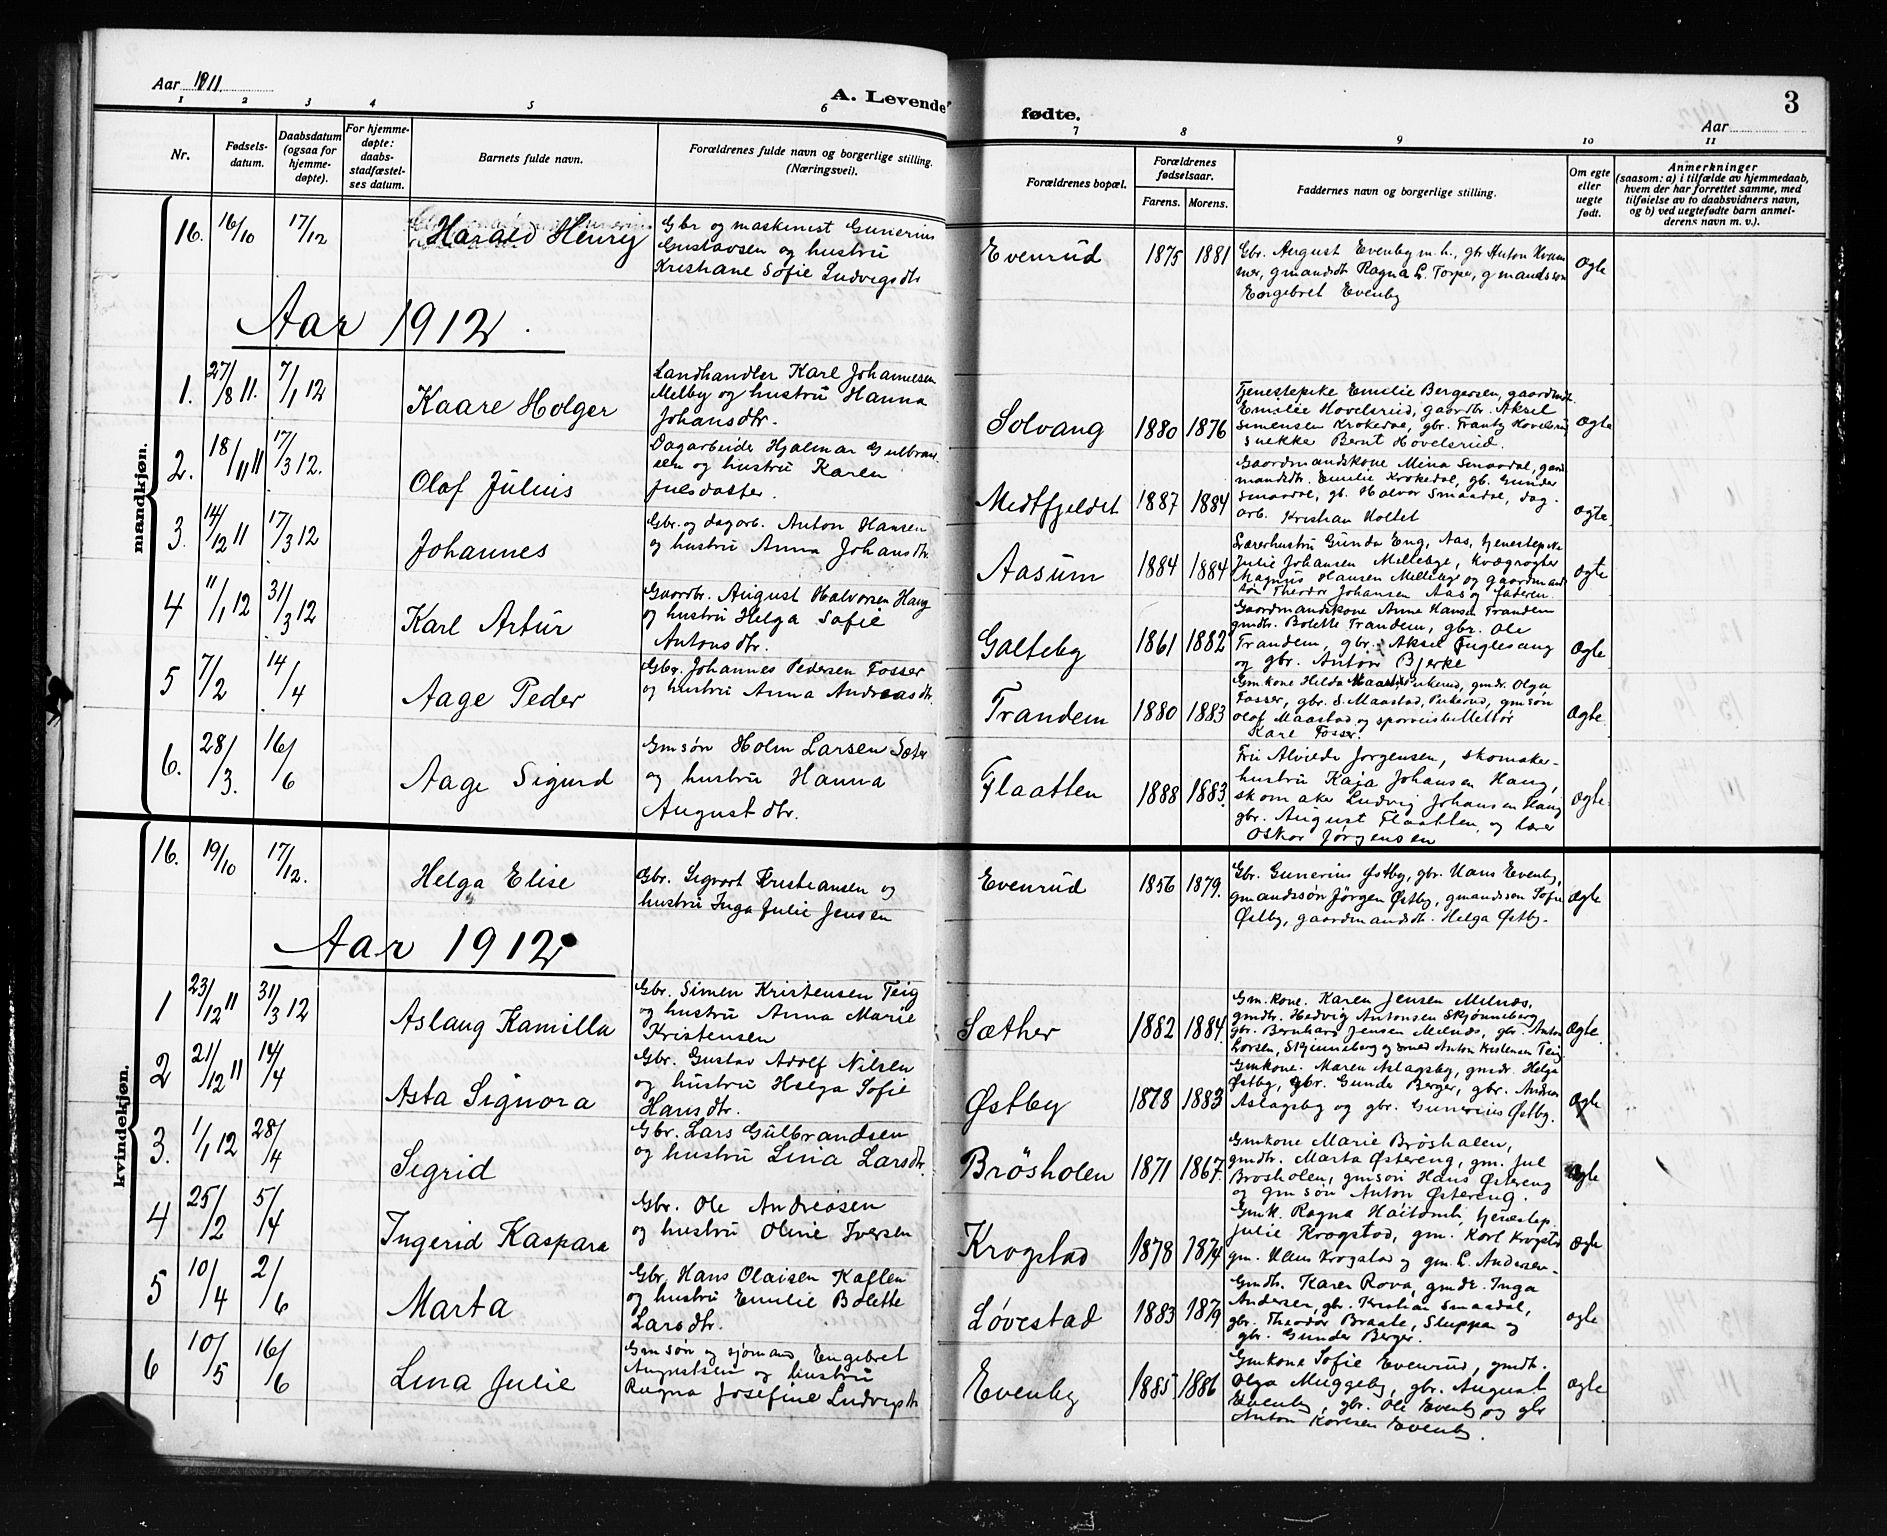 Aar 1911
A. Levende
fødte.
3
Aar
1 2 3 4 5 6 7 8 9 10 11
Nr.
Fødsels-
datum.
Daabsdatum
(ogsaa for
hjemme-
døpte).
For hjemme-
døpte:
daabs-
stadfæstel-
ses datum.
Barnets fulde navn.
Forældrenes fulde navn og borgerlige stilling.
(Næringsvei).
Forældrenes bopæl.
Forældrenes
fødselsaar.
Farens. Morens.
Faddernes navn og borgerlige stilling.
Om egte
eller
uegte
født.
Anmerkninger
(saasom: a) i tilfælde av hjemmedaab,
hvem der har forrettet samme, med
tilføielse av to daabsvidners navn,
og b) ved uegtefødte barn anmel-
derens navn m. v.).
mandkjøn.
16. 16/10 17/12 Harald Henry
Gbr og maskinist Gunerius
Gustavsen og hustru
Kristiane Sofie Ludvigsdtr
Evenrud 1875 1881
Gbr. August Evenby m. h., gbr Anton
gmandsdt Ragna L. Torper, gmandssøn
Engebret Evenby
Ægte
Aar 1912.
1. 27/8 11. 7/1 12 Kaare Holger
Landhandler Karl Johannesen
Melby og hustru Hanna
Johansdtr.
Solvang 1880 1876
Tjenestepike Emilie Bergersen, gaardmdt.
Emilie Hovelsrud, gaardbr. Aksel
Simensen Krokedal, gbr. Frantz Hovelsrud
snekke Bernt Hovelsrud.
Ægte
2. 18/11 11 17/3 12. Olaf Julius
Dagarbeider Hjalmar Gulbran
sen og hustru Karen
Julsdatter.
Midtfjeldet 1887 1884
Gaardmandskone Mina Smaadal, gaard
mandsdt. Emilie Krokedal, gb. Gunder
Smaadal, gb. Halvor Smaadal, dag.
arb. Kristian Holtet
Ægte.
3. 14/12 11 17/3 12 Johannes
Gbr. og dagarb. Anton Hansen
og hustru Anna Johansdtr.
Aasum 1884 1884
Sværerhustru Gunda Eng, Aas, tjenestepike
Julie Johansen Mellebye, Kvægrøgter
Magnus Hansen Mellebye og gaardmand
søn Theodor Johansen Aas og faderen.
Ægte
4 11/1 12 31/3 12 Karl Artur
Gaardbr. August Halvorsen Haug
og hustru Helga Sofie
Antonsdtr.
Galteby 1861 1882
Gaardmandskone Anne Hansa Trandem
gmdtr. Bolette Trandem, gbr. Ole
Trandem, gbr. Aksel Fuglesang
og gbr. Anton Bjerke
Ægte
5 7/2 14/4 Aage Peder
Gbr. Johannes Pedersen Fosser
og hustru Anna Andreasdtr.
Trandem 1880 1883
Gmkone Helda Maastad, gmdr. Olga
Fosser, gbr. S. Maastad, gmsøn
Olaf Maastad og sporveisbillettør
Karl Fosser.
Ægte
6. 28/3. 16/6 Aage Sigurd
Gmsøn Holm Larsen Sæter
og hustru Hanna
Augustdtr.
Flaatten 1888 1883.
Fru Alvilde Jørgensen, skomaker-
hustru Kaja Johansen Haug,
skomaker Ludvig Johansen Haug
gbr. August Flaatten, og lærer
Oskar Jørgensen
Ægte.
kvindekjøn.
16. 19/10 17/12. Helga Elise
Gbr. Sigvart Kristiansen og
hustru Inga Julie Jensen
Evenrud 1856 1879.
Gbr. Gunerius Østby, gbr. Hans Evenby,
gmandssøn Jørgen Østby, gmandssøn Sofie
Østby, gaardmandsdt. Helga Østby.
Ægte
Aar 1912.
1 23/12 11 31/3 12 Aslaug Kamilla
Gbr. Simen Kristensen Teig
og hustru Anna Marie
Kristensen
Sæther 1882 1884.
Gm.kone. Karen Jensen Melnæs,
gmdtr. Hedvig Antonsen Skjønneberg
gbr. Bernhard Jensen Melnæs, gbr. Anton
Larsen, Skjønneberg og smed Anton Kristensen Teig
Ægte.
2 21/12 11 14/4 Asta Signora
Gbr. Gustav Adolf Nilsen
og hustru Helga Sofie
Hansdtr.
Østby 1878 1883
Gmkone. Maren Aslagsby, gmdr. Helga
Østby, gbr. Gunder Berger, gbr. Andreas
Aslagsby og gbr. Gunerius Østby.
Ægte
3. 1/1 12 28/4 Sigrid
Gbr. Lars Gulbrandsen
og hustru Lina Larsdtr.
Brøsholen 1871 1867.
Gmkone Marie Brøsholen,
gmdtr. Marta Østereng, gm. Jul
Brøsholen, gmsøn Hans Østereng
og gmsøn Anton Østereng.
Ægte
4 25/2 5/4 Ingerid Kaspara
Gbr. Ole Andreasen
og hustru Oline Iversen
Krogstad 1878 1874
Gmk. Ragna tjenestep.
Julie Krogstad, gm. Karl Krogstad
gm. Hans Krogstad og gm. L. Andersen.
Ægte
5 10/4 2/6 Marta
Gbr. Hans Olaisen Kallen
og hustru Emilie Bolette
Larsdtr.
Løvestad 1883 1879
Gmdtr. Karen Rova, gmdr. Inga
Andersen, gbr. Kristian Smaadal,
gbr. Theodor Braate, Sluppan og
gbr. Gunder Berger.
Ægte
6 10/5 16/6 Lina Julie
Gmsøn og sjømand Engebret
Augustsen og hustru
Ragna Josefine Ludvigsdtr
Evenby 1885 1886
Gmkone Sofie Evenrud, gmdtr.
Olga Muggeby, gbr. August
Evenby, gbr. Ole Evenby og gbr
Anton Karlsen Evenby.
Ægte